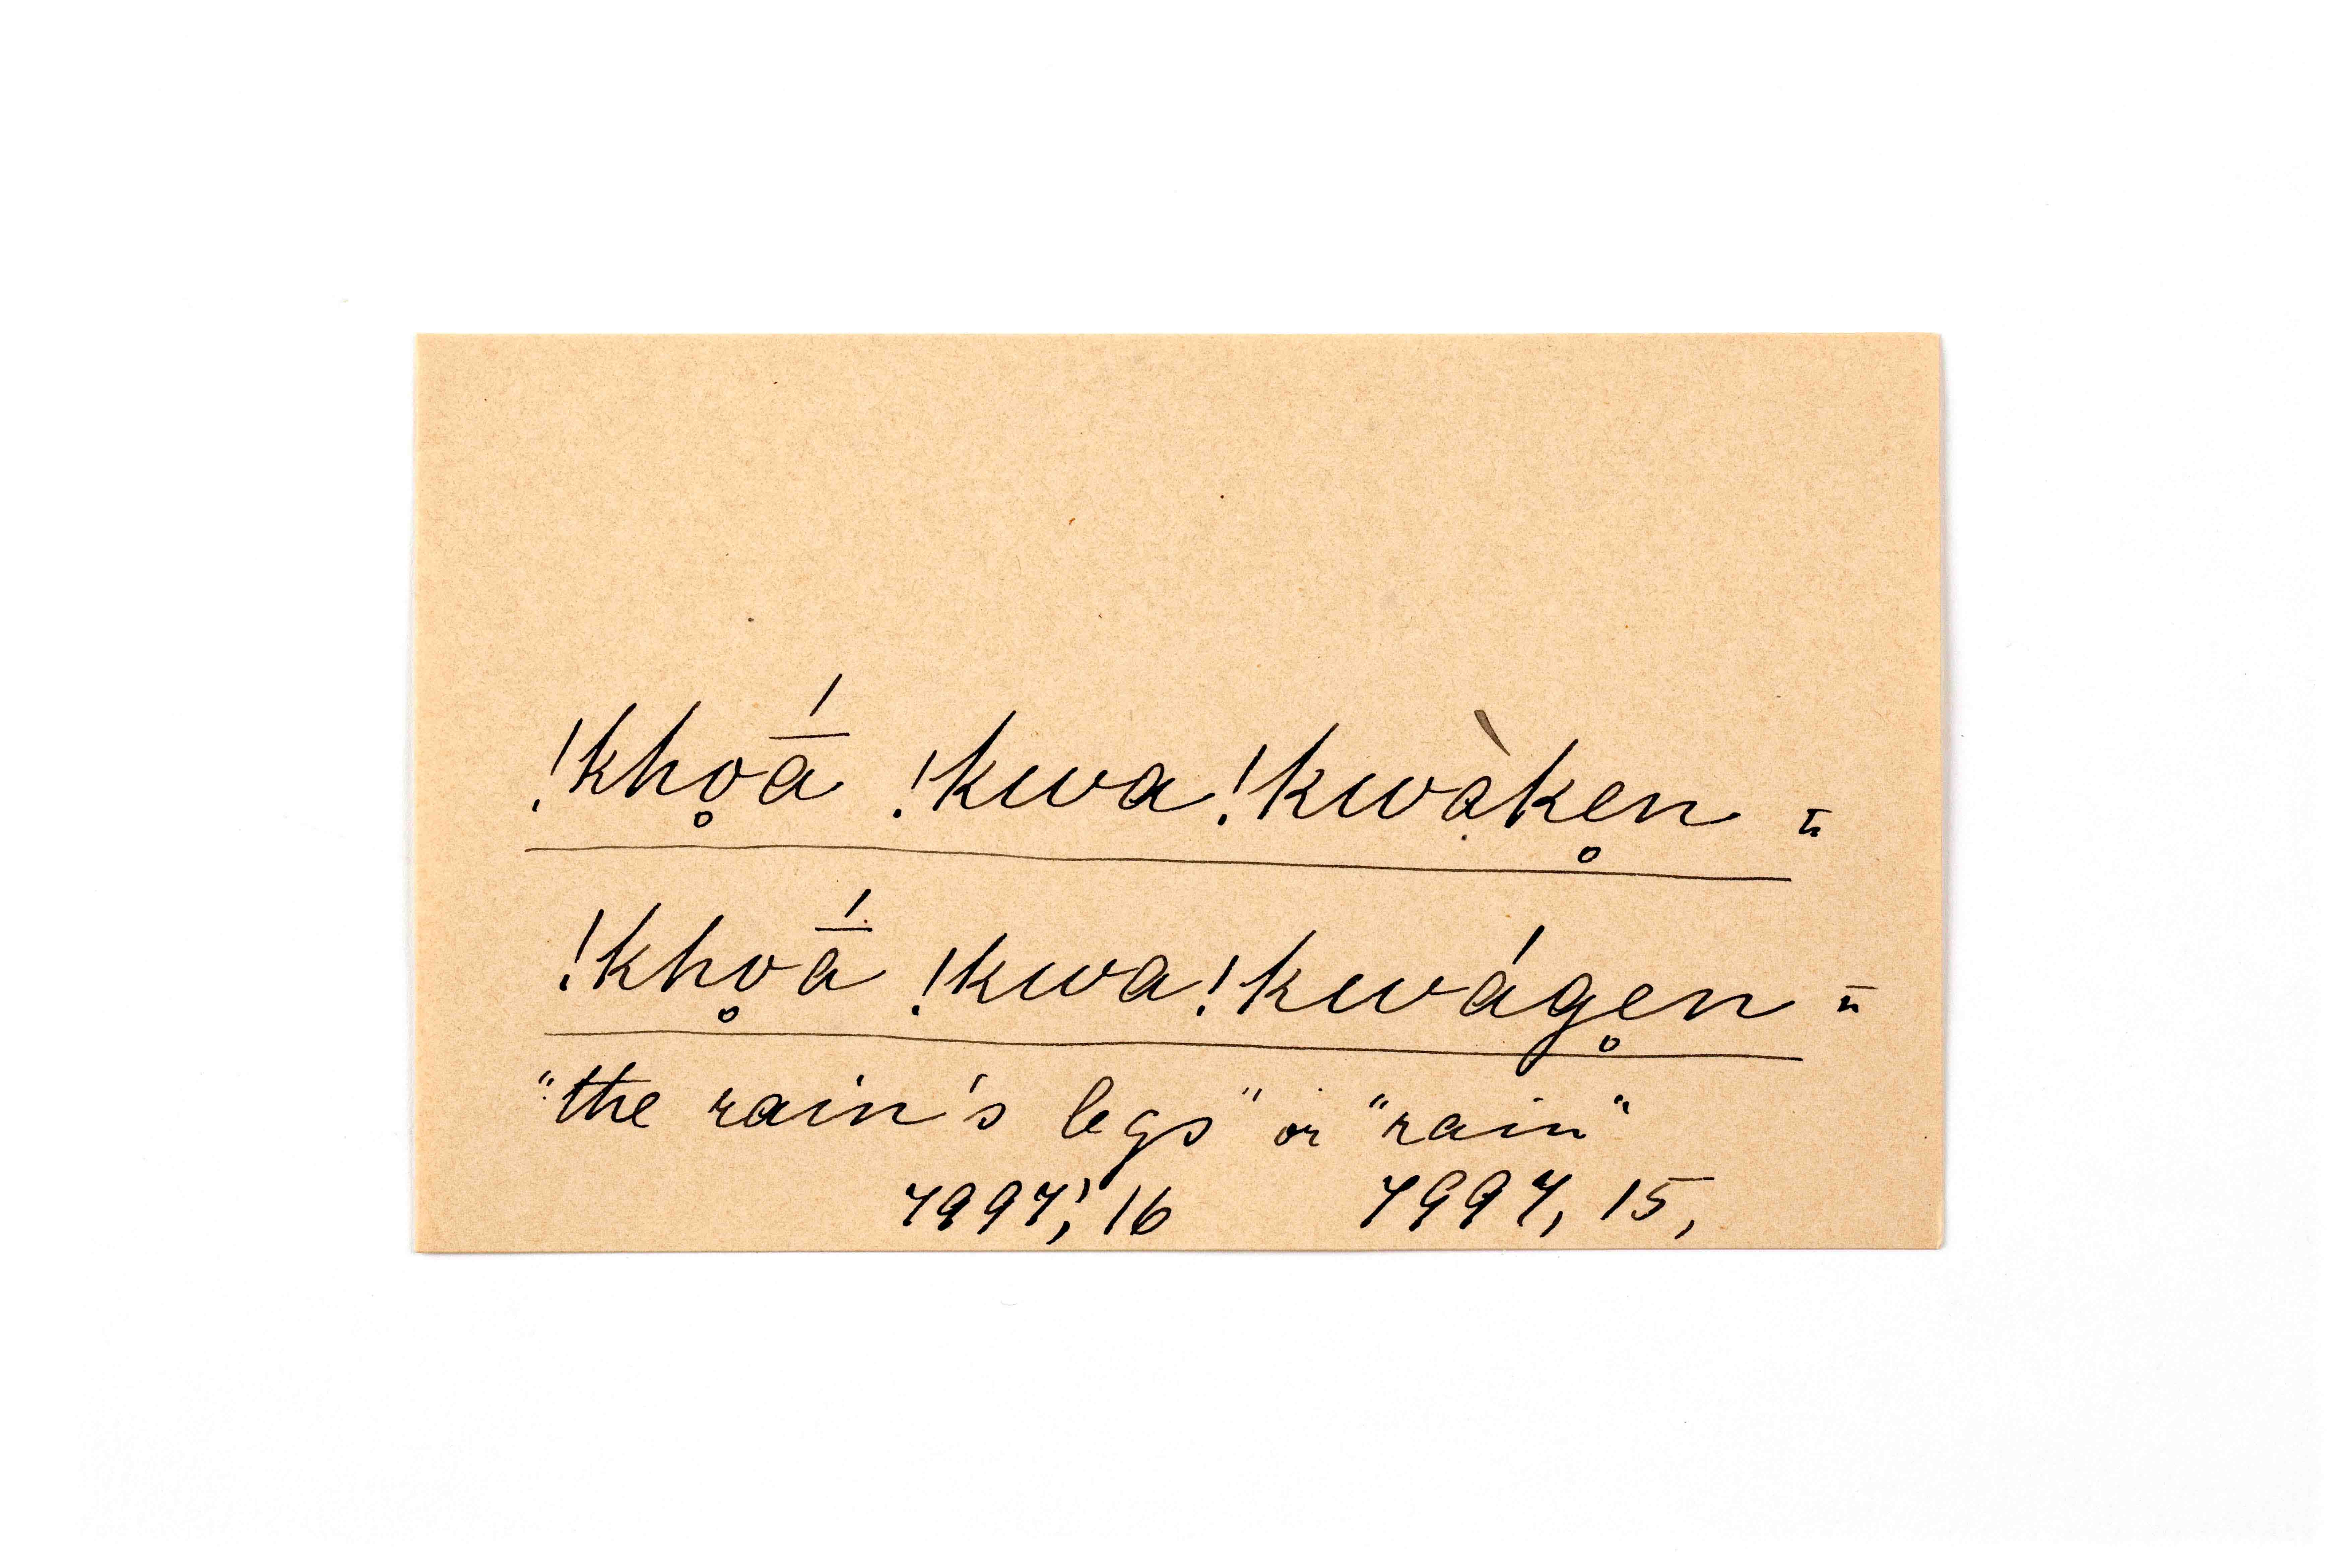 !kho̥ā́ !kwa!kwàke̥n =
!kho̥ā́ !kwa!kwáge̥n =
"the rain's legs" or "rain"
7997, 16 7997, 15,